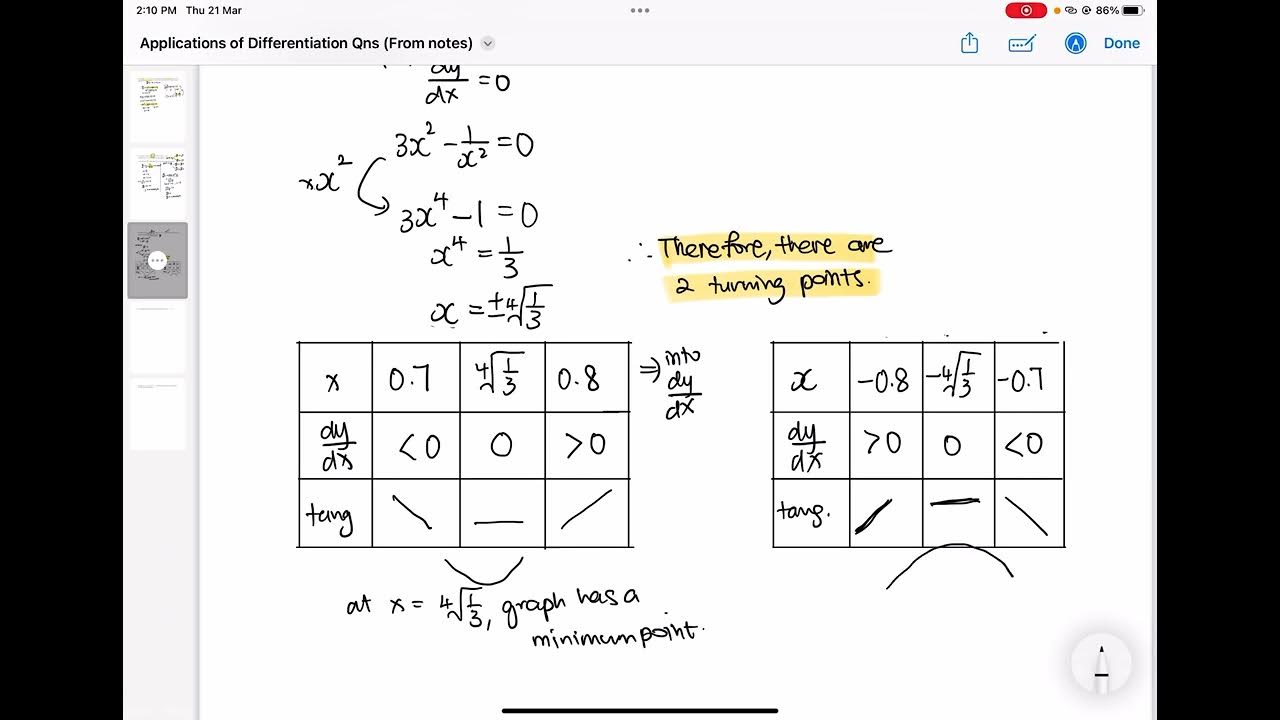 2:10 PM Thu 21 Mar
86%
Applications of Differentiation Qns (From notes)
Done
dy/dx = 0
3x² - 1/x² = 0
×x²
3x⁴ - 1 = 0
x⁴ = 1/3
x = ±⁴√(1/3)
∴ Therefore, there are
2 turning points.
x 0.7 ⁴√(1/3) 0.8
dy/dx <0 0 >0
tang
⇒ into
dy/dx
x -0.8 -⁴√(1/3) -0.7
dy/dx >0 0 <0
tang.
at x = ⁴√(1/3), graph has a
minimum point.